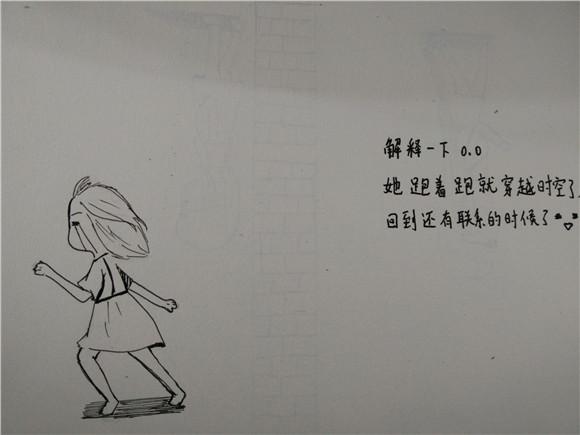 解释一下 0.0
她跑着跑就穿越时空了
回到还有联系的时候了